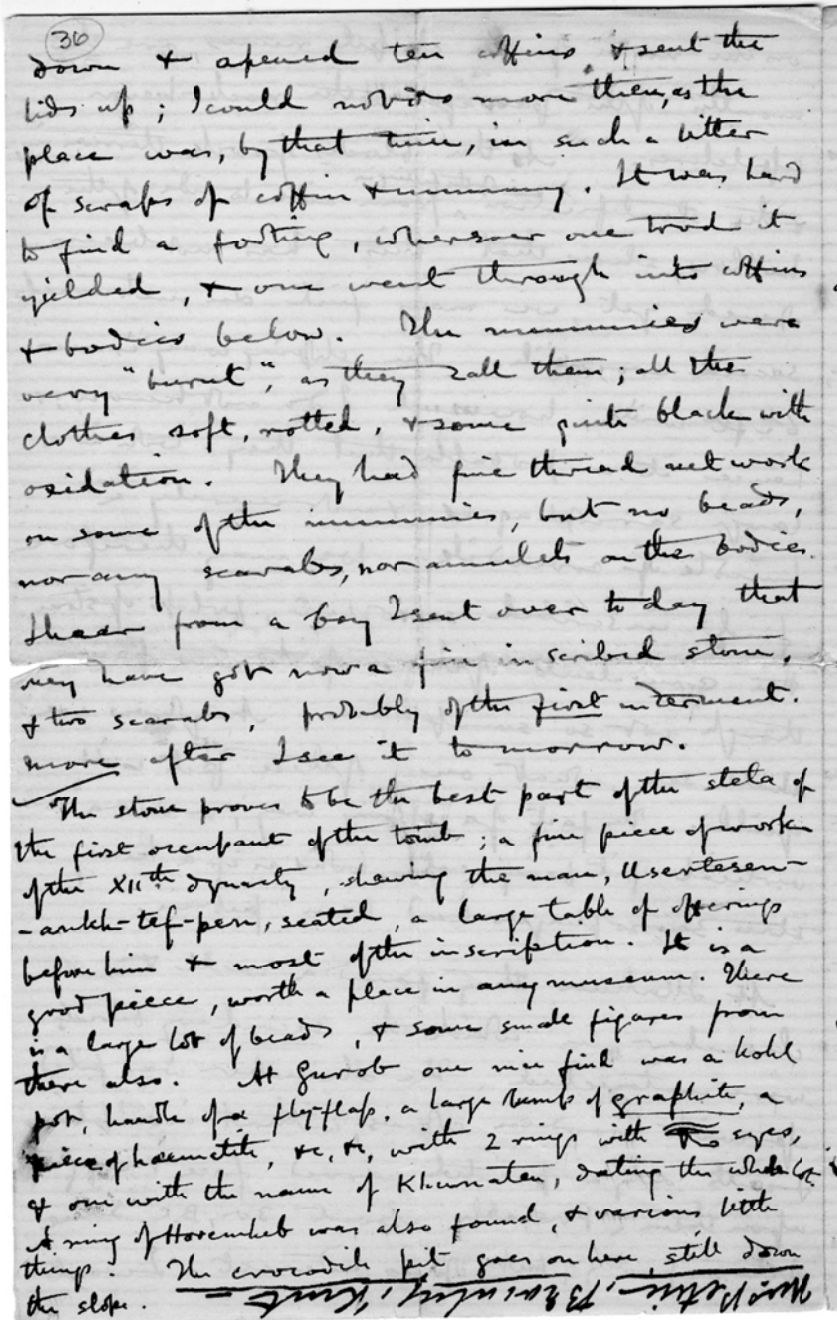 36
down & opened ten coffins & sent the
lids up; I could not do more then, as the
place was, by that time, in such a litter
of scraps of coffin & mummy. It was hard
to find a footing, wheresoever one trod it
yielded, & one went through into coffins
& bodies below. The mummies were
very "burnt", as they call them; all the
clothes soft, rotted, & some quite black with
oxidation. They had fine thread network
on some of the mummies, but no beads,
nor any scarabs, nor amulets on the bodies.
I hear from a boy I sent over to day that
they have got now a fine inscribed stone,
& two scarabs, probably of the first interment.
more after I see it to morrow.
The stone proves to be the best part of the stela of
the first occupant of the tomb; a fine piece of work
of the XIIth dynasty, shewing the man, Usertesen-
-ankh-tef-pen, seated, a large table of offerings
before him & most of the inscription. It is a
good piece, worth a place in any museum. There
is a large lot of beads, & some small figures from
there also. At Gurob one nice find was a kohl
pot, handle of a fly-flap, a large lump of graphite, a
piece of haematite, &c, &c, with 2 rings with eyes,
& one with the name of Khunaten, dating the whole lot.
A ring of Horemheb was also found, & various little
things. The crocodile pit goes on here, still down
the slope.
Mrs Petrie, Bromley, Kent